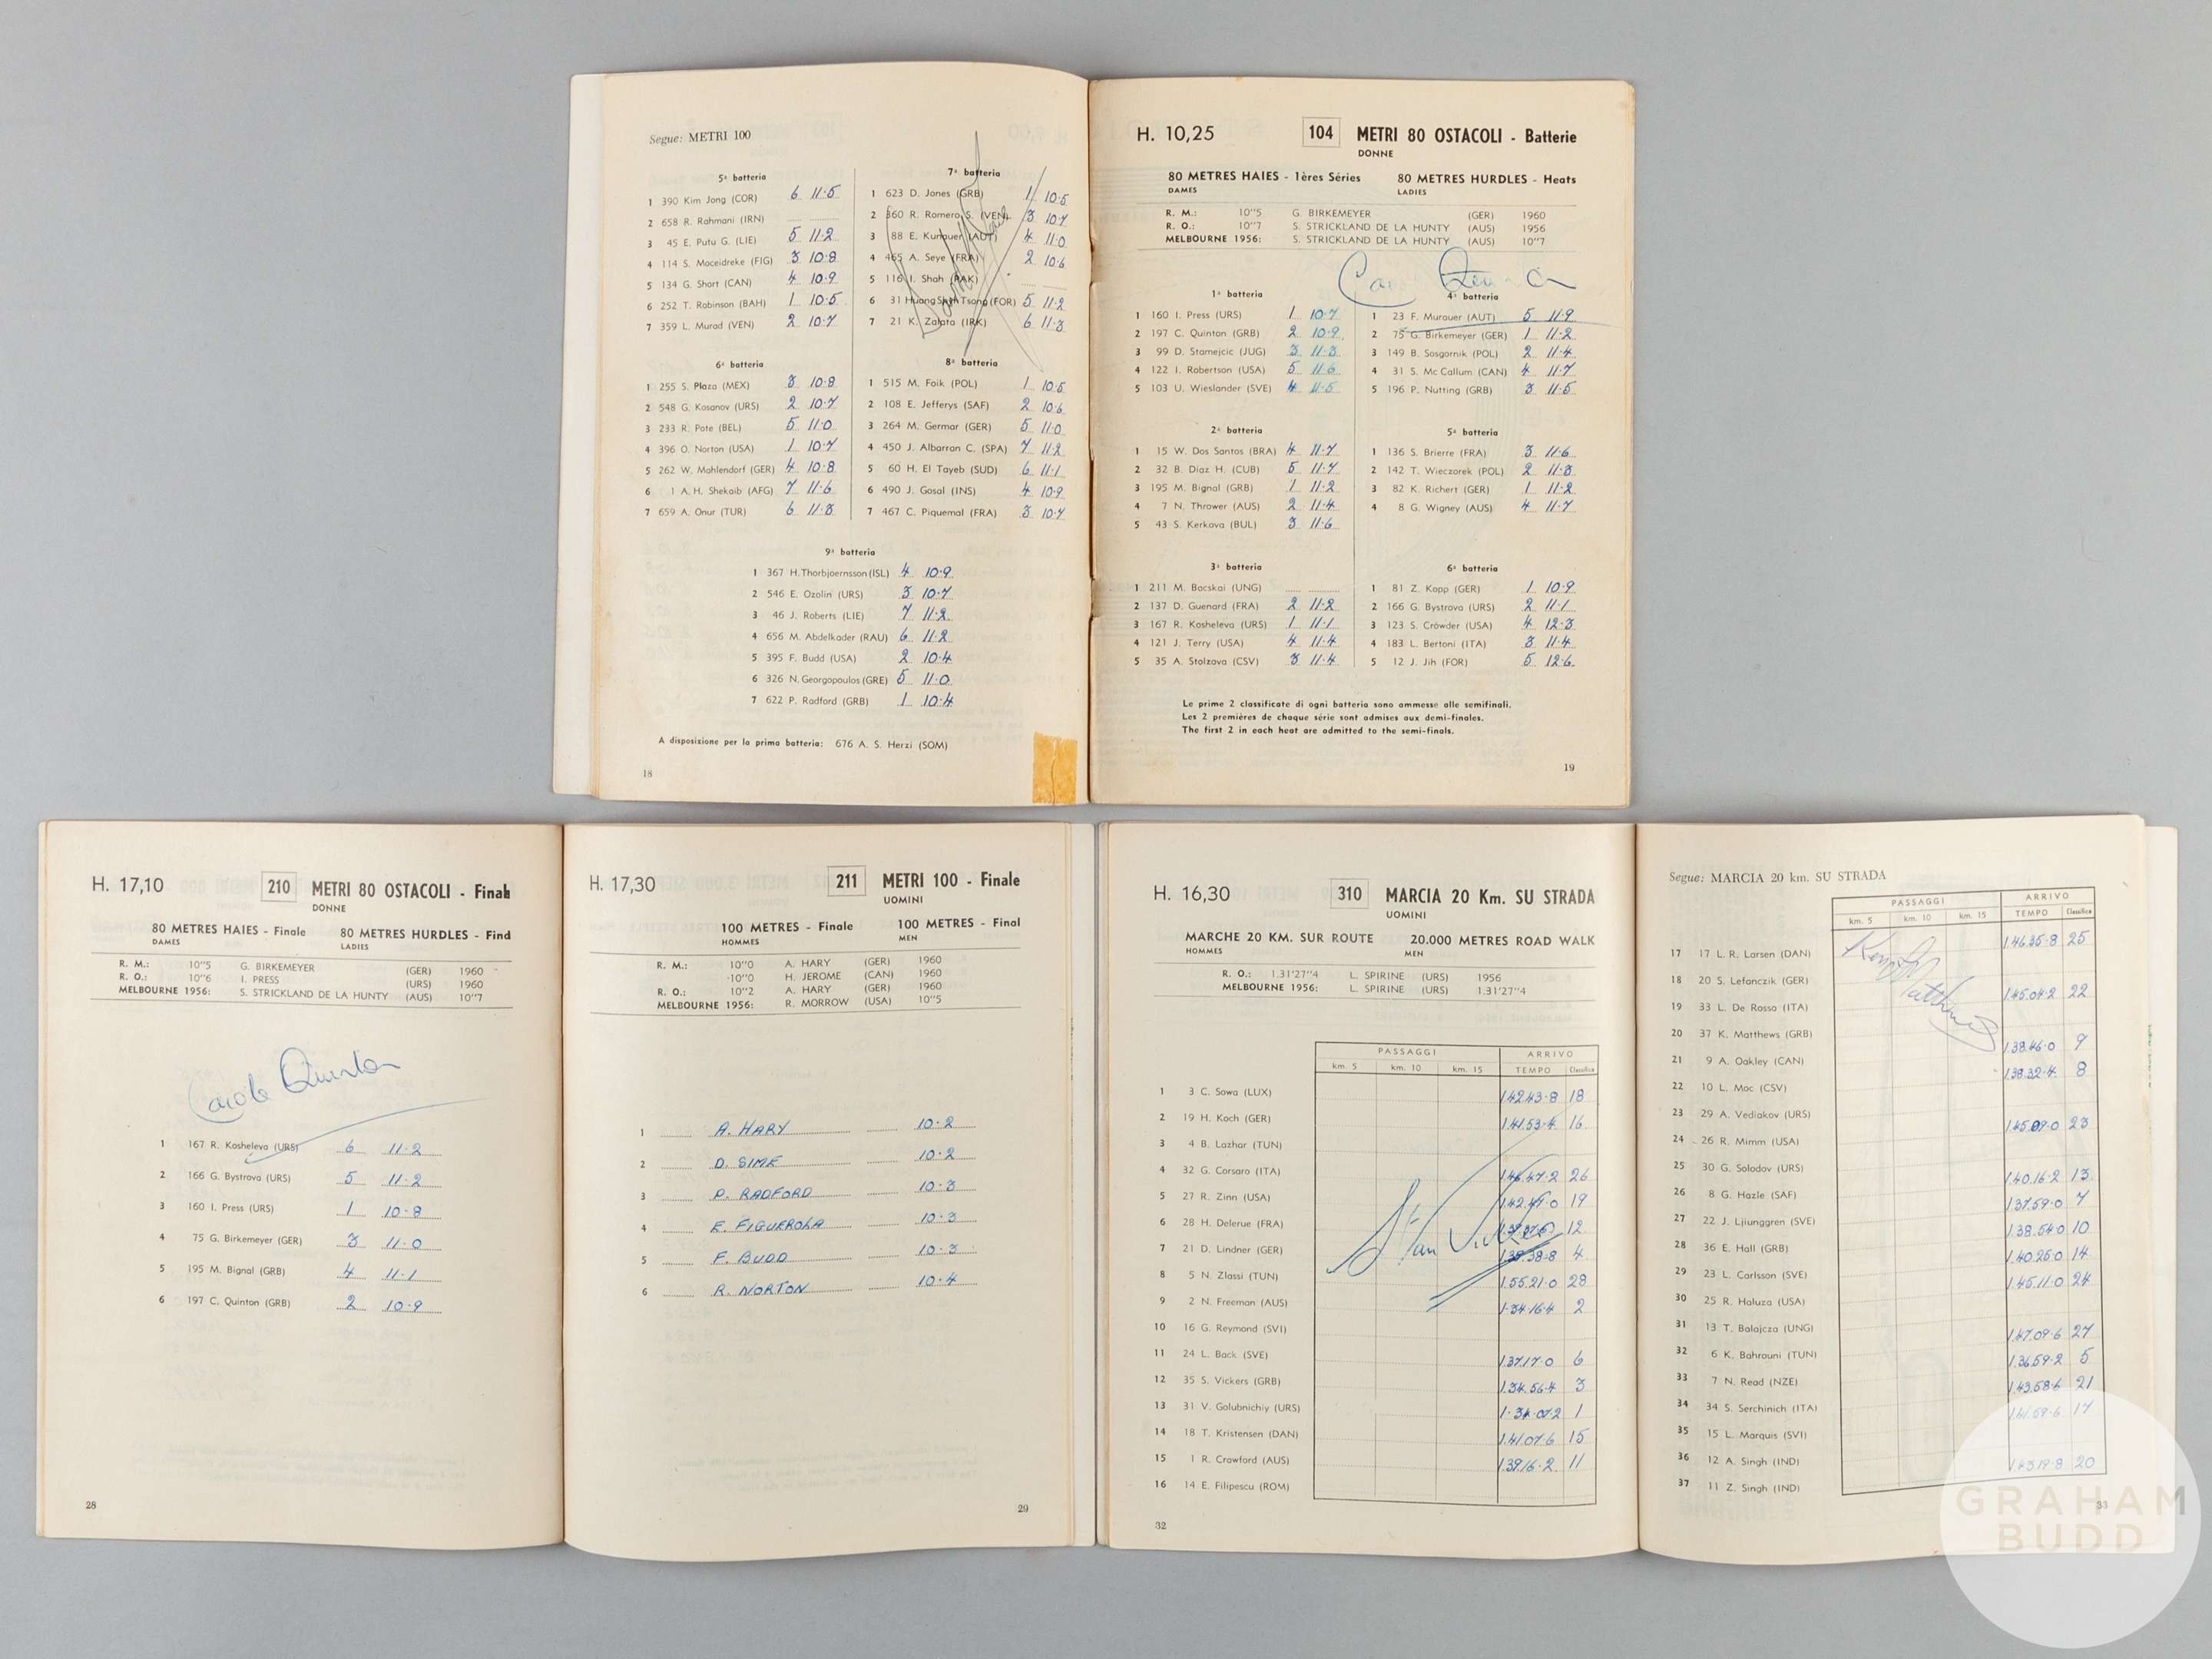 Segue: METRI 100
5ª batteria
1 390 Kim Jong (COR) 6 11.5
2 658 R. Rahmani (IRN)
3 45 E. Putu G. (LIE) 5 11.2
4 114 S. Moceidreke (FIG) 3 10.8
5 134 G. Short (CAN) 4 10.9
6 252 T. Robinson (BAH) 1 10.5
7 359 L. Murad (VEN) 2 10.7
6ª batteria
1 255 S. Plaza (MEX) 3 10.8
2 548 G. Kosanov (URS) 2 10.7
3 233 R. Pote (BEL) 5 11.0
4 396 O. Norton (USA) 1 10.7
5 262 W. Mahlendorf (GER) 4 10.8
6 1 A. H. Shekaib (AFG) 7 11.6
7 659 A. Onur (TUR) 6 11.3
7ª batteria
1 623 D. Jones (GRB) 1 10.5
2 360 R. Romero S. (VEN) 3 10.7
3 88 E. Kunauer (AUT) 4 11.0
4 465 A. Seye (FRA) 2 10.6
5 116 I. Shah (PAK)
6 31 Huang Shih Tsong (FOR) 5 11.2
7 21 K. Zalata (IRK) 6 11.3
8ª batteria
1 515 M. Foik (POL) 1 10.5
2 108 E. Jefferys (SAF) 2 10.6
3 264 M. Germar (GER) 5 11.0
4 450 J. Albarran C. (SPA) 7 11.2
5 60 H. El Tayeb (SUD) 6 11.1
6 490 J. Gosal (INS) 4 10.9
7 467 C. Piquemal (FRA) 3 10.7
9ª batteria
1 367 H. Thorbjoernsson (ISL) 4 10.9
2 546 E. Ozolin (URS) 3 10.7
3 46 J. Roberts (LIE) 7 11.2
4 656 M. Abdelkader (RAU) 6 11.2
5 395 F. Budd (USA) 2 10.4
6 326 N. Georgopoulos (GRE) 5 11.0
7 622 P. Radford (GRB) 1 10.4
A disposizione per la prima batteria: 676 A. S. Herzi (SOM)
18
H. 10,25 104 METRI 80 OSTACOLI - Batterie
DONNE
80 METRES HAIES - 1ères Séries 80 METRES HURDLES - Heats
DAMES LADIES
R. M.: 10"5 G. BIRKEMEYER (GER) 1960
R. O.: 10"7 S. STRICKLAND DE LA HUNTY (AUS) 1956
MELBOURNE 1956: S. STRICKLAND DE LA HUNTY (AUS) 10"7
1ª batteria
1 160 I. Press (URS) 1 10.7
2 197 C. Quinton (GRB) 2 10.9
3 99 D. Stamejcic (JUG) 3 11.3
4 122 I. Robertson (USA) 5 11.6
5 103 U. Wieslander (SVE) 4 11.5
2ª batteria
1 15 W. Dos Santos (BRA) 4 11.7
2 32 B. Diaz H. (CUB) 5 11.7
3 195 M. Bignal (GRB) 1 11.2
4 7 N. Thrower (AUS) 2 11.4
5 43 S. Kerkova (BUL) 3 11.6
3ª batteria
1 211 M. Bacskai (UNG)
2 137 D. Guenard (FRA) 2 11.2
3 167 R. Kosheleva (URS) 1 11.1
4 121 J. Terry (USA) 4 11.4
5 35 A. Stolzova (CSV) 3 11.4
4ª batteria
1 23 F. Murauer (AUT) 5 11.9
2 75 G. Birkemeyer (GER) 1 11.2
3 149 B. Sosgornik (POL) 2 11.4
4 31 S. Mc Callum (CAN) 4 11.7
5 196 P. Nutting (GRB) 3 11.5
5ª batteria
1 136 S. Brierre (FRA) 3 11.6
2 142 T. Wieczorek (POL) 2 11.3
3 82 K. Richert (GER) 1 11.2
4 8 G. Wigney (AUS) 4 11.7
6ª batteria
1 81 Z. Kopp (GER) 1 10.9
2 166 G. Bystrova (URS) 2 11.1
3 123 S. Crowder (USA) 4 12.3
4 183 L. Bertoni (ITA) 3 11.4
5 12 J. Jih (FOR) 5 12.6
Le prime 2 classificate di ogni batteria sono ammesse alle semifinali.
Les 2 premières de chaque série sont admises aux demi-finales.
The first 2 in each heat are admitted to the semi-finals.
19
H. 17,10 210 METRI 80 OSTACOLI - Finale
DONNE
80 METRES HAIES - Finale 80 METRES HURDLES - Find
DAMES LADIES
R. M.: 10"5 G. BIRKEMEYER (GER) 1960
R. O.: 10"6 I. PRESS (URS) 1960
MELBOURNE 1956: S. STRICKLAND DE LA HUNTY (AUS) 10"7
Carole Quinton
1 167 R. Kosheleva (URS) 6 11.2
2 166 G. Bystrova (URS) 5 11.2
3 160 I. Press (URS) 1 10.8
4 75 G. Birkemeyer (GER) 3 11.0
5 195 M. Bignal (GRB) 4 11.1
6 197 C. Quinton (GRB) 2 10.9
28
H. 17,30 211 METRI 100 - Finale
UOMINI
100 METRES - Finale 100 METRES - Final
HOMMES MEN
R. M.: 10"0 A. HARY (GER) 1960
10"0 H. JEROME (CAN) 1960
R. O.: 10"2 A. HARY (GER) 1960
MELBOURNE 1956: R. MORROW (USA) 10"5
1 A. HARY 10.2
2 D. SIME 10.2
3 P. RADFORD 10.3
4 E. FIGUEROLA 10.3
5 F. BUDD 10.3
6 R. NORTON 10.4
29
H. 16,30 310 MARCIA 20 Km. SU STRADA
UOMINI
MARCHE 20 KM. SUR ROUTE 20.000 METRES ROAD WALK
HOMMES MEN
R. O.: 1.31'27"4 L. SPIRINE (URS) 1956
MELBOURNE 1956: L. SPIRINE (URS) 1.31'27"4
PASSAGGI ARRIVO
km. 5 km. 10 km. 15 TEMPO Classifica
1 3 C. Sowa (LUX) 1.42.43.8 18
2 19 H. Koch (GER) 1.41.53.4 16
3 4 B. Lazhar (TUN)
4 32 G. Corsaro (ITA) 1.46.47.2 26
5 27 R. Zinn (USA) 1.42.47.0 19
6 28 H. Delerue (FRA) 12
7 21 D. Lindner (GER) 38.8 4
8 5 N. Zlassi (TUN) 1.55.21.0 28
9 2 N. Freeman (AUS) 1.34.16.4 2
10 16 G. Reymond (SVI)
11 24 L. Back (SVE) 1.37.17.0 6
12 35 S. Vickers (GRB) 1.34.56.4 3
13 31 V. Golubnichiy (URS) 1.34.07.2 1
14 18 T. Kristensen (DAN) 1.41.07.6 15
15 1 R. Crawford (AUS) 1.39.16.2 11
16 14 E. Filipescu (ROM)
Stan Vickers
32
Segue: MARCIA 20 km. SU STRADA
PASSAGGI ARRIVO
km. 5 km. 10 km. 15 TEMPO Classifica
Ken Matthews
17 17 L. R. Larsen (DAN) 1.46.35.8 25
18 20 S. Lefanczik (GER)
19 33 L. De Rosso (ITA) 1.45.04.2 22
20 37 K. Matthews (GRB)
21 9 A. Oakley (CAN) 1.38.46.0 9
22 10 L. Moc (CSV) 1.38.32.4 8
23 29 A. Vediakov (URS)
24 26 R. Mimm (USA) 1.45.09.0 23
25 30 G. Solodov (URS)
26 8 G. Hazle (SAF) 1.40.16.2 13
27 22 J. Ljiunggren (SVE) 1.37.59.0 7
28 36 E. Hall (GRB) 1.38.54.0 10
29 23 L. Carlsson (SVE) 1.40.26.0 14
30 25 R. Haluza (USA) 1.45.11.0 24
31 13 T. Balajcza (UNG)
32 6 K. Bahrouni (TUN) 1.47.09.6 27
33 7 N. Read (NZE) 1.36.59.2 5
34 34 S. Serchinich (ITA) 1.43.58.6 21
35 15 L. Marquis (SVI) 1.41.59.6 17
36 12 A. Singh (IND)
37 11 Z. Singh (IND) 1.43.19.8 20
33
GRAHAM
BUDD